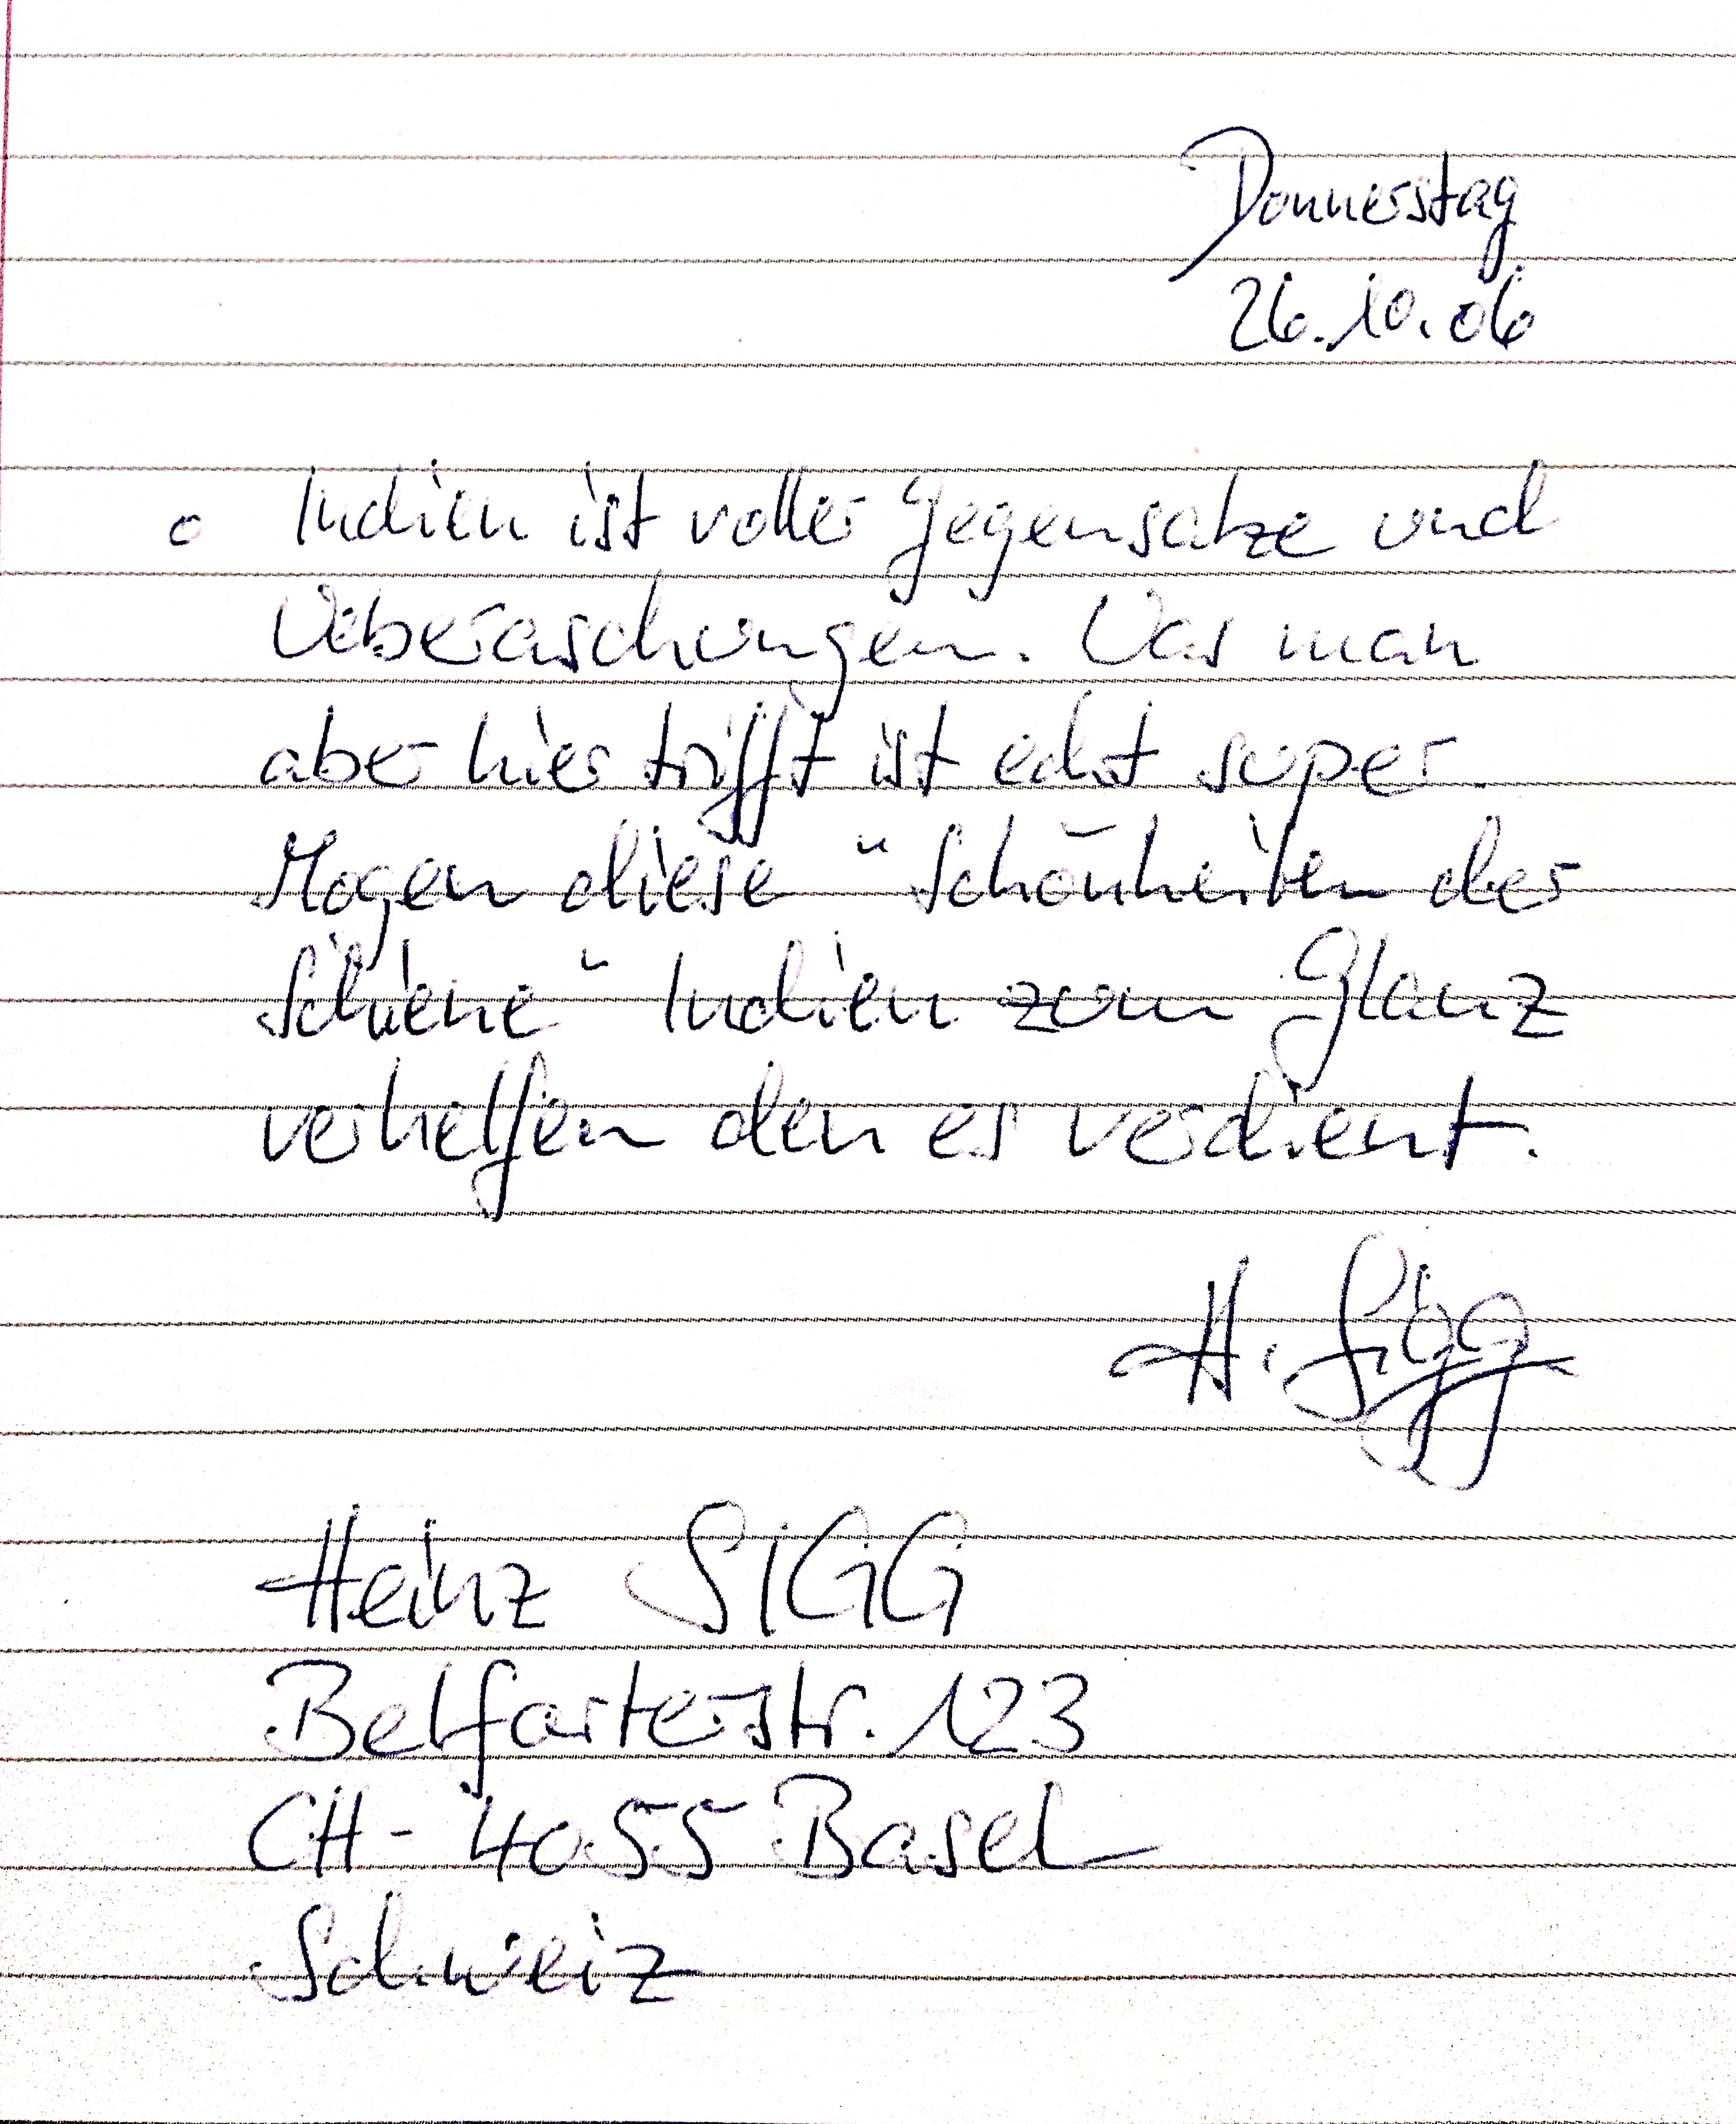 Donnerstag
26.10.06
o Indien ist voller Gegensatze und
Ueberaschungen. Was man
aber hier trifft ist echt super.
Mogen diese "Schönheiten der
Schiene" Indien zum Glanz
verhelfen den es verdient.
H. Sigg
Heinz SIGG
Belforterstr. 123
CH-4055 Basel
Schweiz